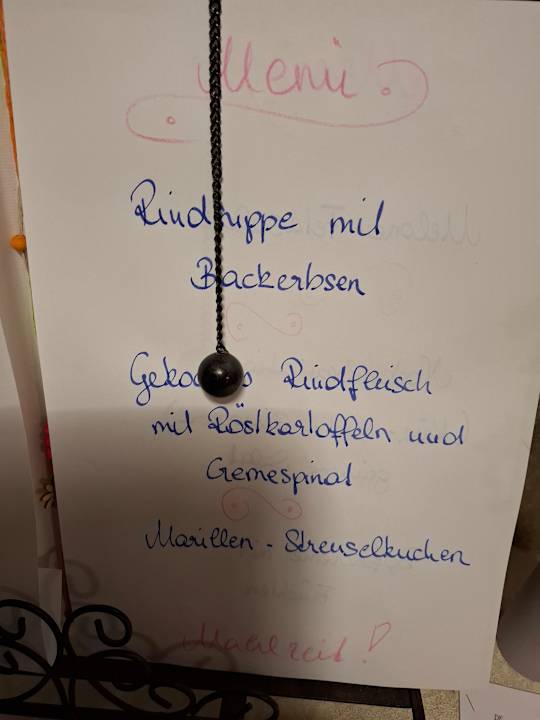 Menü
Rindsuppe mit
Backerbsen
Gekochtes Rindfleisch
mit Röstkartoffeln und
Cremespinat
Marillen - Streuselkuchen
Mahlzeit!